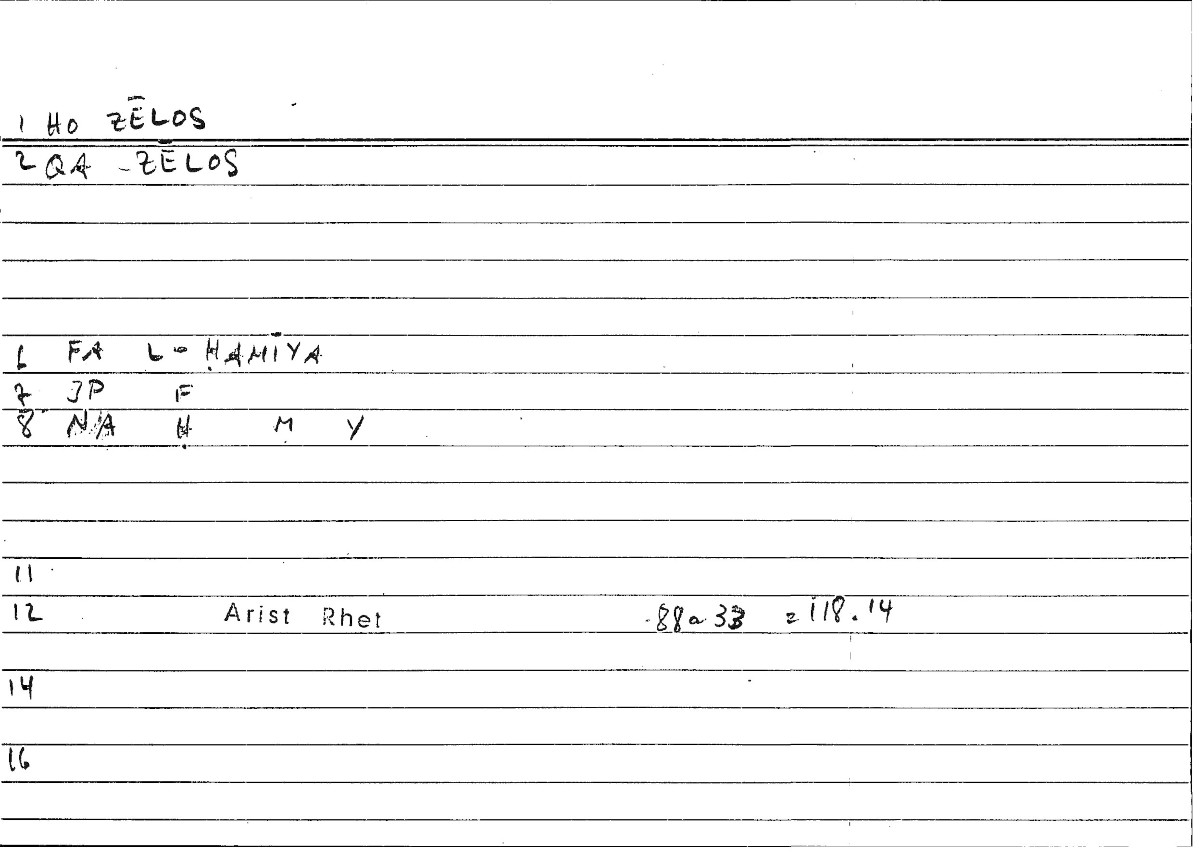 1 HO ZĒLOS
2 QA - ZĒLOS
6 FA L - ḤAMĪYA
7 3P F
8 N/A Ḥ M Y
11
12 Arist Rhet 88a33 = 118.14
14
16